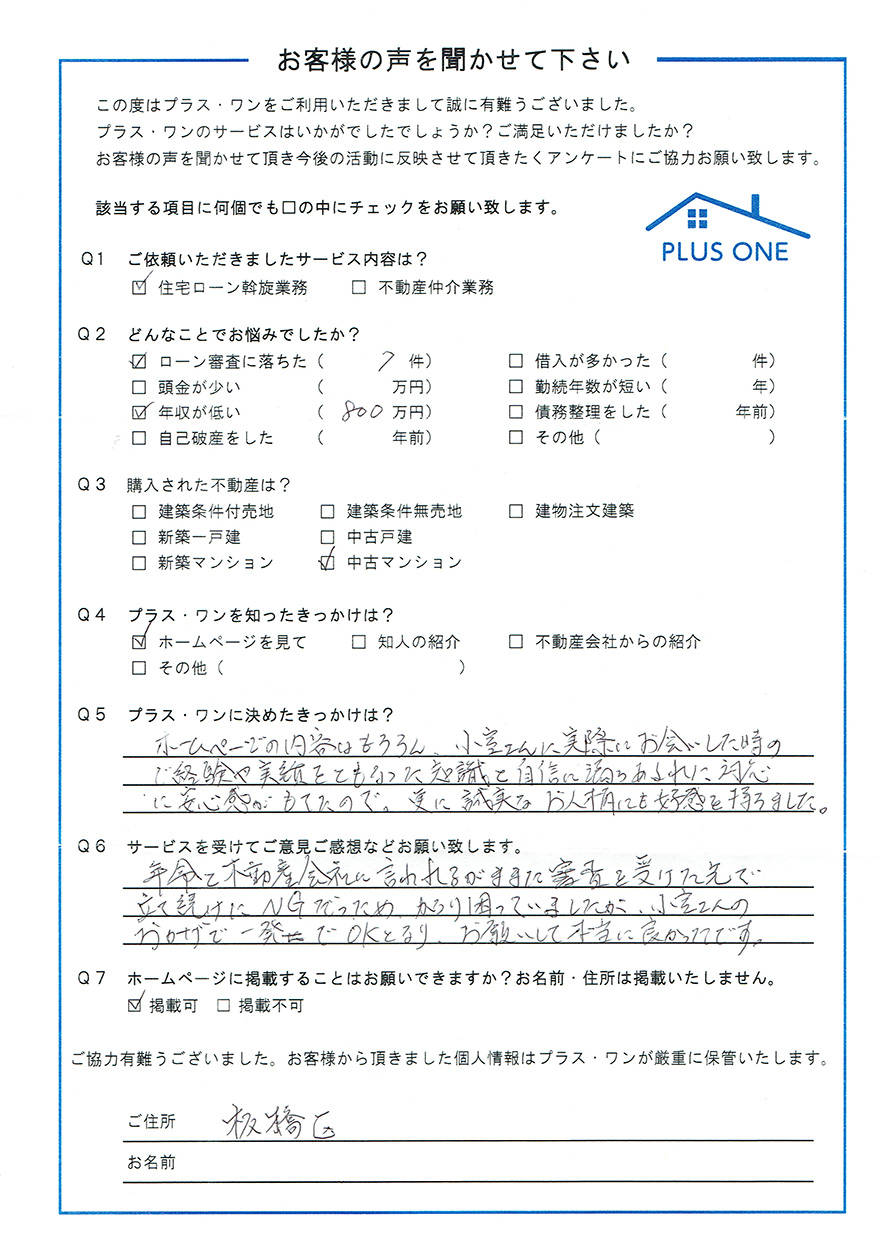 お客様の声を聞かせて下さい
この度はプラス・ワンをご利用いただきまして誠に有難うございました。
プラス・ワンのサービスはいかがでしたでしょうか?ご満足いただけましたか?
お客様の声を聞かせて頂き今後の活動に反映させて頂きたくアンケートにご協力お願い致します。
該当する項目に何個でも□の中にチェックをお願い致します。
PLUS ONE
Q1 ご依頼いただきましたサービス内容は?
☑ 住宅ローン斡旋業務 □ 不動産仲介業務
Q2 どんなことでお悩みでしたか?
☑ ローン審査に落ちた( 7 件) □ 借入が多かった( 件)
□ 頭金が少い ( 万円) □ 勤続年数が短い( 年)
☑ 年収が低い ( 800 万円) □ 債務整理をした( 年前)
□ 自己破産をした ( 年前) □ その他( )
Q3 購入された不動産は?
□ 建築条件付売地 □ 建築条件無売地 □ 建物注文建築
□ 新築一戸建 □ 中古戸建
□ 新築マンション ☑ 中古マンション
Q4 プラス・ワンを知ったきっかけは?
☑ ホームページを見て □ 知人の紹介 □ 不動産会社からの紹介
□ その他( )
Q5 プラス・ワンに決めたきっかけは?
ホームページの内容はもちろん、小室さんに実際にお会いした時の
ご経験や実績をともなった知識と自信に満ちあふれた対応
に安心感がもてたので。更に誠実なお人柄にも好感を持ちました。
Q6 サービスを受けてご意見ご感想などお願い致します。
年令と不動産会社に言われるがままに審査を受けた先で
立て続けにNGだったため、かなり困っていましたが、小室さんの
おかげで一発でOKとなり、お願いして本当に良かったです。
Q7 ホームページに掲載することはお願いできますか?お名前・住所は掲載いたしません。
☑ 掲載可 □ 掲載不可
ご協力有難うございました。お客様から頂きました個人情報はプラス・ワンが厳重に保管いたします。
ご住所 板橋区
お名前